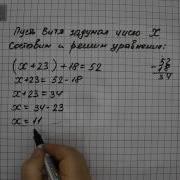 Пусть Витя задумал число X
Составим и решим уравнение:
(x+23)+18=52
x+23=52-18
x+23=34
x=34-23
x=11
52
-18
34